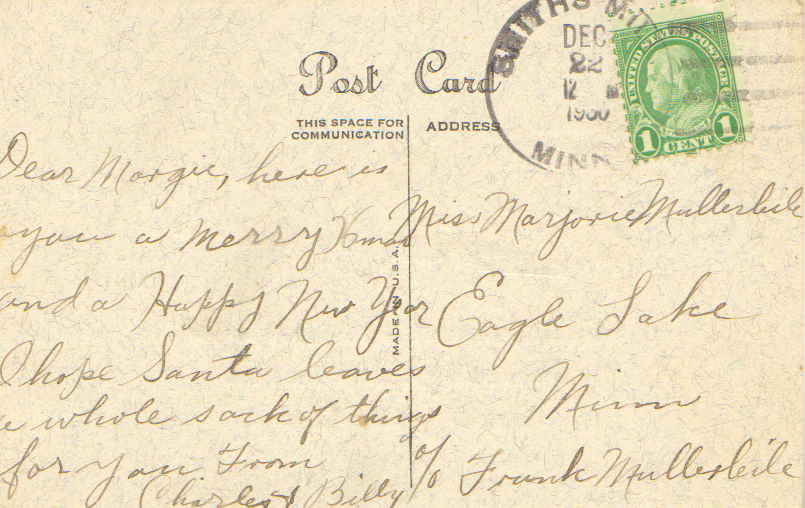 SMITHS MILL
DEC
22
12 M
1930
MINN
UNITED STATES POSTAGE
1 CENT 1
Post Card
THIS SPACE FOR
COMMUNICATION
ADDRESS
MADE IN U.S.A.
Dear Margie, here is
you a merry Xmas
and a Happy New Year
I hope Santa leaves
a whole sack of things
for you From
Charles & Billy
Miss Marjorie Mullerleile
Eagle Lake
Minn
c/o Frank Mullerleile